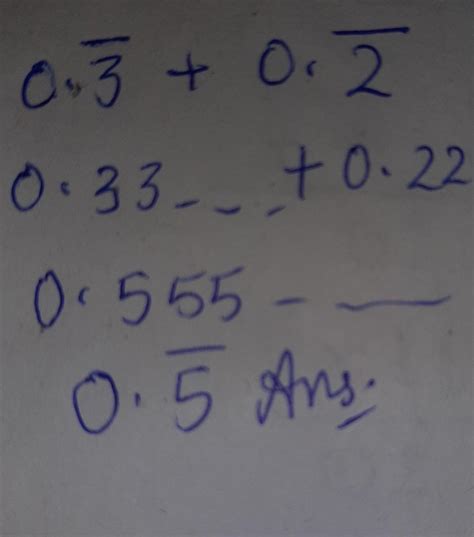 0.3̅ + 0.2̅
0.33--- + 0.22
0.555 - —
0.5̅ Ans.